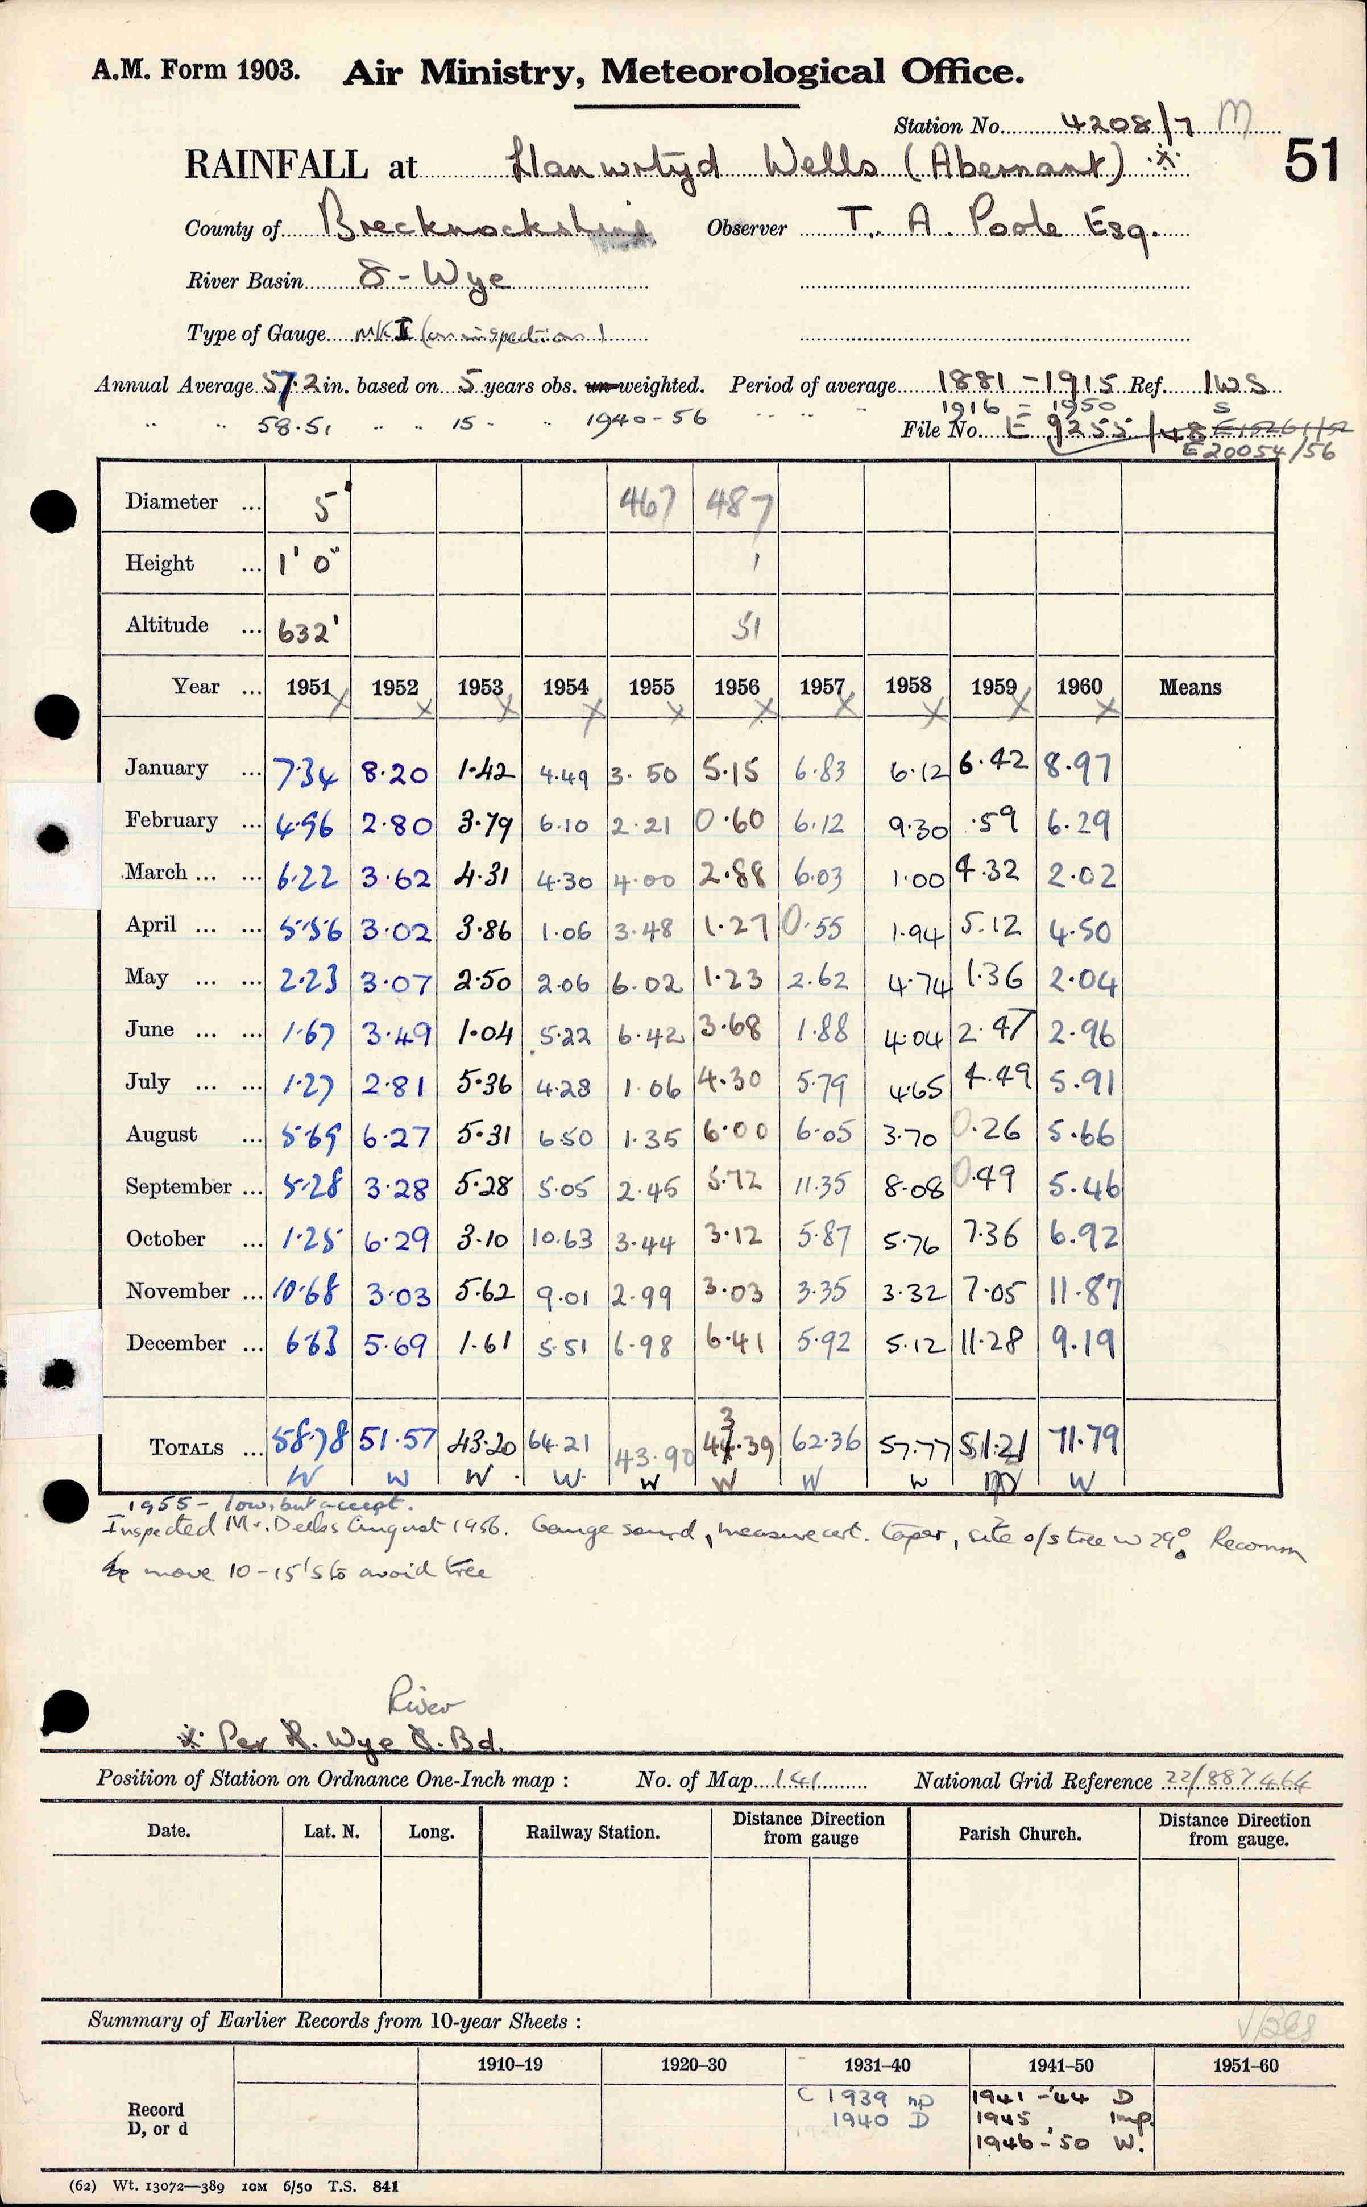 A.M. Form 1903. Air Ministry, Meteorological Office.
Station No. 4208/7 M
RAINFALL at Llanwrtyd Wells (Abernant) ※ 51
County of Brecknockshire Observer T. A. Poole Esq.
River Basin 8 - Wye
Type of Gauge MK II (on inspection)
Annual Average 57.2 in. based on 5 years obs. un-weighted. Period of average 1881 - 1915 Ref. IWS
" " 58.51 " " 15 " " 1940-56 " " " 1916 = 1950 S
File No. E 9255/48 E 20054/56
Diameter ... 5" 467 487
Height ... 1' 0" 1
Altitude ... 632' 51
Year ... 1951 1952 1953 1954 1955 1956 1957 1958 1959 1960 Means
X X X X X X X X X X
January ... 7.34 8.20 1.42 4.49 3.50 5.15 6.83 6.12 6.42 8.97
February ... 4.96 2.80 3.79 6.10 2.21 0.60 6.12 9.30 .59 6.29
March ... ... 6.22 3.62 4.31 4.30 4.00 2.88 6.03 1.00 4.32 2.02
April ... ... 5.56 3.02 3.86 1.06 3.48 1.27 0.55 1.94 5.12 4.50
May ... ... 2.23 3.07 2.50 2.06 6.02 1.23 2.62 4.74 1.36 2.04
June ... ... 1.67 3.49 1.04 5.22 6.42 3.68 1.88 4.04 2.47 2.96
July ... ... 1.27 2.81 5.36 4.28 1.06 4.30 5.79 4.65 4.49 5.91
August ... 5.69 6.27 5.31 6.50 1.35 6.00 6.05 3.70 0.26 5.66
September ... 5.28 3.28 5.28 5.05 2.45 5.72 11.35 8.08 0.49 5.46
October ... 1.25 6.29 3.10 10.63 3.44 3.12 5.87 5.76 7.36 6.92
November ... 10.68 3.03 5.62 9.01 2.99 3.03 3.35 3.32 7.05 11.87
December ... 6.63 5.69 1.61 5.51 6.98 6.41 5.92 5.12 11.28 9.19
TOTALS ... 58.78 51.57 43.20 64.21 43.90 43.39 62.36 57.77 51.21 71.79
W W W W W W W W W
1955 - low, but accept.
Inspected Mr. August 1956. Gauge sound, measure cert. taper, site o/s tree W 29°. Recomm
move 10-15' S to avoid tree
River
※ Per R. Wye R. Bd.
Position of Station on Ordnance One-Inch map : No. of Map 141 National Grid Reference 22/887464
Date. Lat. N. Long. Railway Station. Distance Direction from gauge Parish Church. Distance Direction from gauge.
Summary of Earlier Records from 10-year Sheets :
1910–19 1920–30 1931–40 1941–50 1951–60
Record D, or d
C 1939 np 1941 - '44 D
1940 D 1945 Imp.
1946 - '50 W.
(62) Wt. 13072—389 10M 6/50 T.S. 841